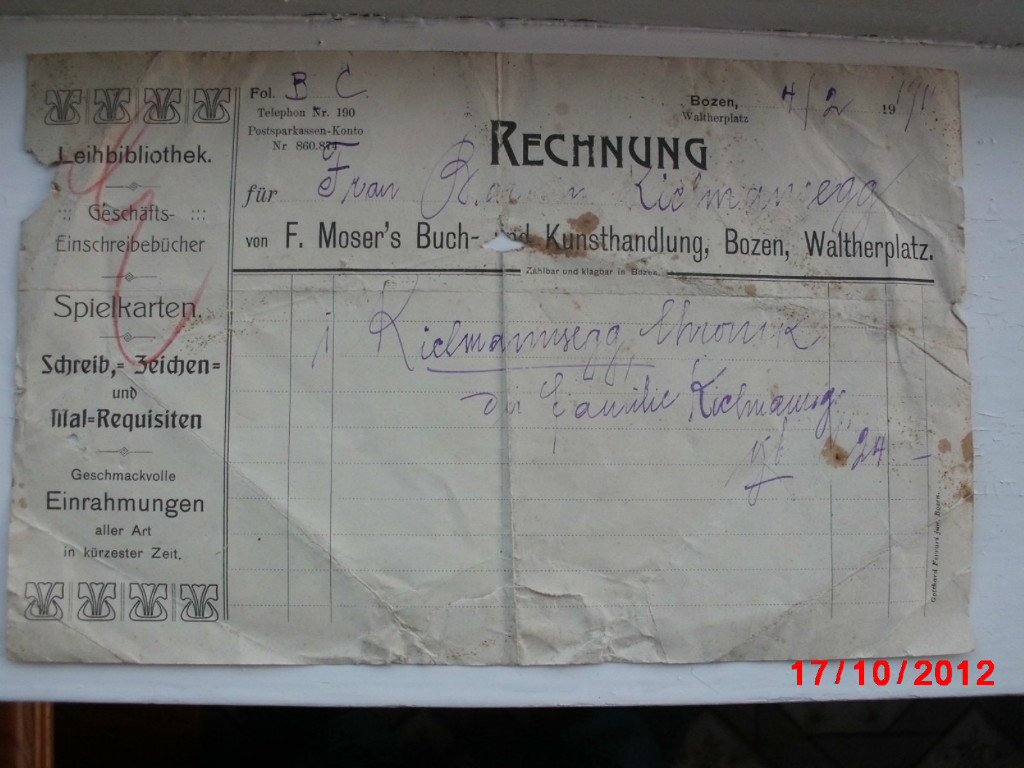 Leihbibliothek.
Geschäfts-
Einschreibebücher
Spielkarten.
Schreib,= Zeichen=
und
Mal=Requisiten
Geschmackvolle
Einrahmungen
aller Art
in kürzester Zeit.
Fol. B C.
Telephon Nr. 190
Postsparkassen-Konto
Nr 860.
Bozen, 4/2 19
Waltherplatz
RECHNUNG
für Frau Kielmansegg
von F. Moser's Buch- und Kunsthandlung, Bozen, Waltherplatz.
Zahlbar und klagbar in Bozen.
1 Kielmannsegg, Chronik
der Familie Kielmansg.
24 –
Gotthard Ferrari jun. Bozen.
17/10/2012